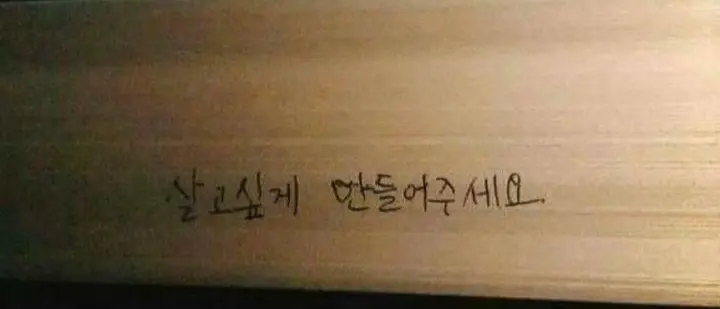 살고싶게 만들어주세요.